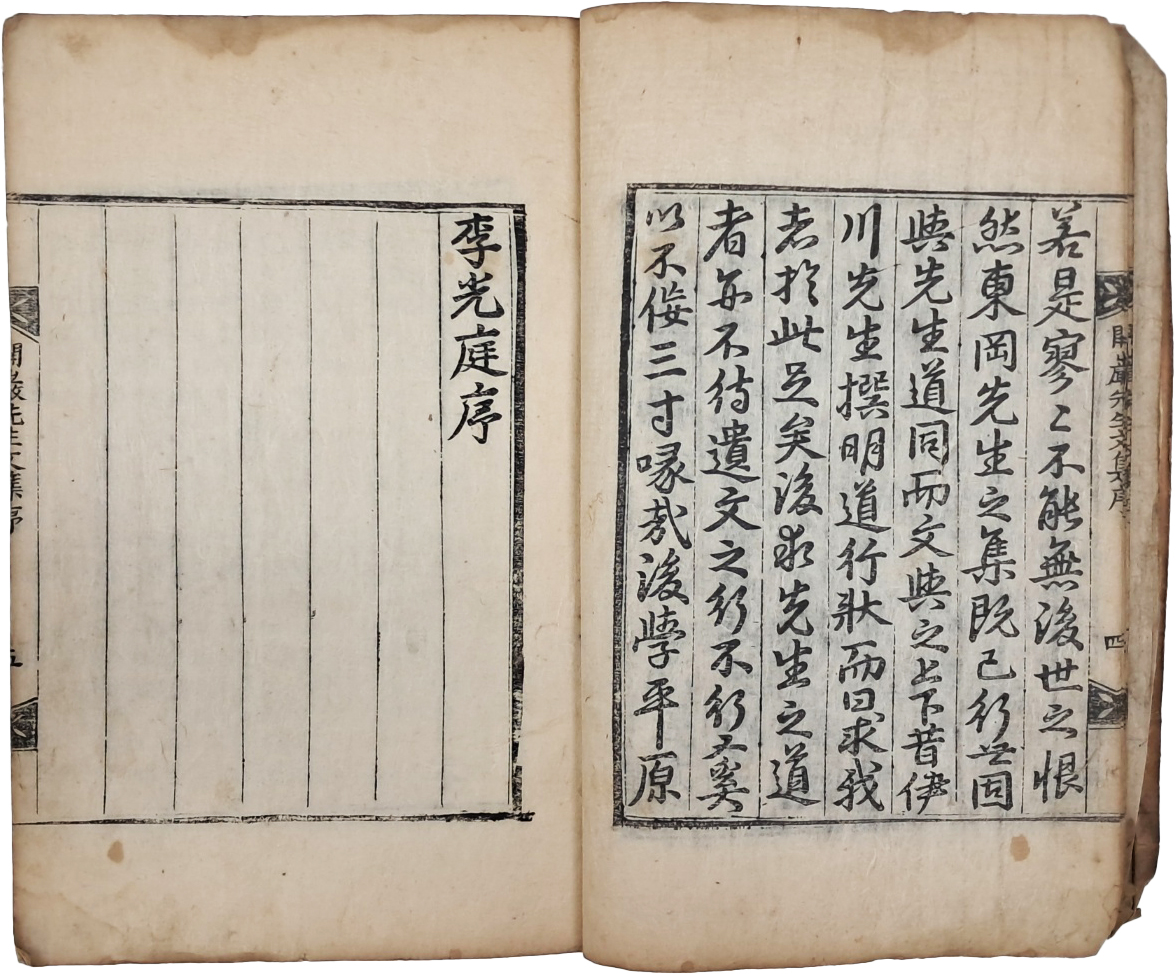 開巖先生文集序
四
若是寥〻不能無後世之恨
然東岡先生之集既已行世固
與先生道同而文與之上下昔伊
川先生撰明道行狀而曰求我
者於此足矣後求先生之道
者亦不待遺文之行不行又奚
以不侫三寸喙哉後學平原
李光庭序
開巖先生文集序
五